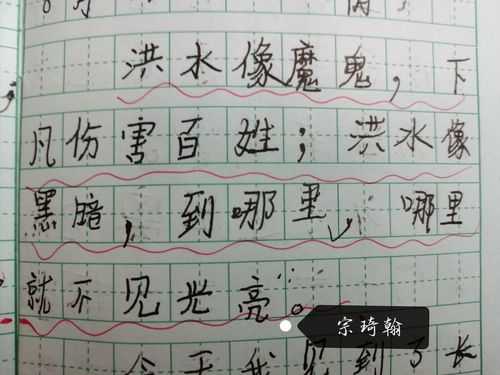 洪水像魔鬼，下
凡伤害百姓；洪水像
黑暗，到哪里，哪里
就不见光亮。
宗琦翰
今天我 到了长